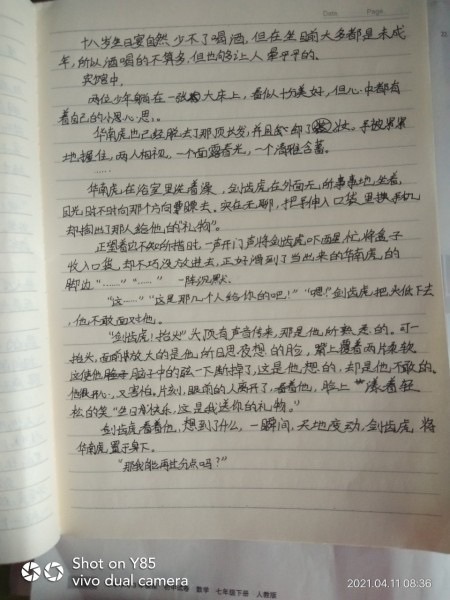 Date Page
十八岁生日宴自然少不了喝酒,但在坐面大多都是未成
年,所以酒喝的不算多,但也够让人晕乎乎的。
宾馆中,
两位少年躺在一张大床上,看似十分美好,但心中都有
着自己的小思心思。
华南虎也已经脱去了那顶长发,并且卸了妆,手被累累
地握住,两人相视,一个面露春光,一个清雅含蓄。
……
华南虎在浴室里洗着澡,剑齿虎在外面无所事事地坐着,
目光时不时向那个方向瞟去。实在无聊,把手伸入口袋里手机
却掏出了那人给他的"礼物"。
正望着它不知所措时,一声开门声将剑齿虎吓,忙将盒子
收入口袋,却不巧没放进去,正好滑到了当出来的华南虎,的
脚边。"……""……"一阵沉默。
"这……""这是那几个人给你的吧!""嗯!"剑齿虎把头低下去
,他不敢面对他。
"剑齿虎!抬头"头顶有声音传来,那是他所熟悉的。可一
抬头,面前放大的是他所日思夜想的脸,嘴上覆着两片柔软
这使他脑子中的弦一下断掉了,这是他想的,却是他不敢的。
他很开心,又害怕。片刻,眼前的人离开了,看着他,脸上漾着轻
松的笑"生日快乐,这是我送你的礼物。"
剑齿虎看着他,想到了什么,一瞬间,天地变动,剑齿虎将
华南虎置于身下。
"那我能再过分点吗?"
数学 七年级下册 人教版
Shot on Y85
vivo dual camera
2021.04.11 08:36